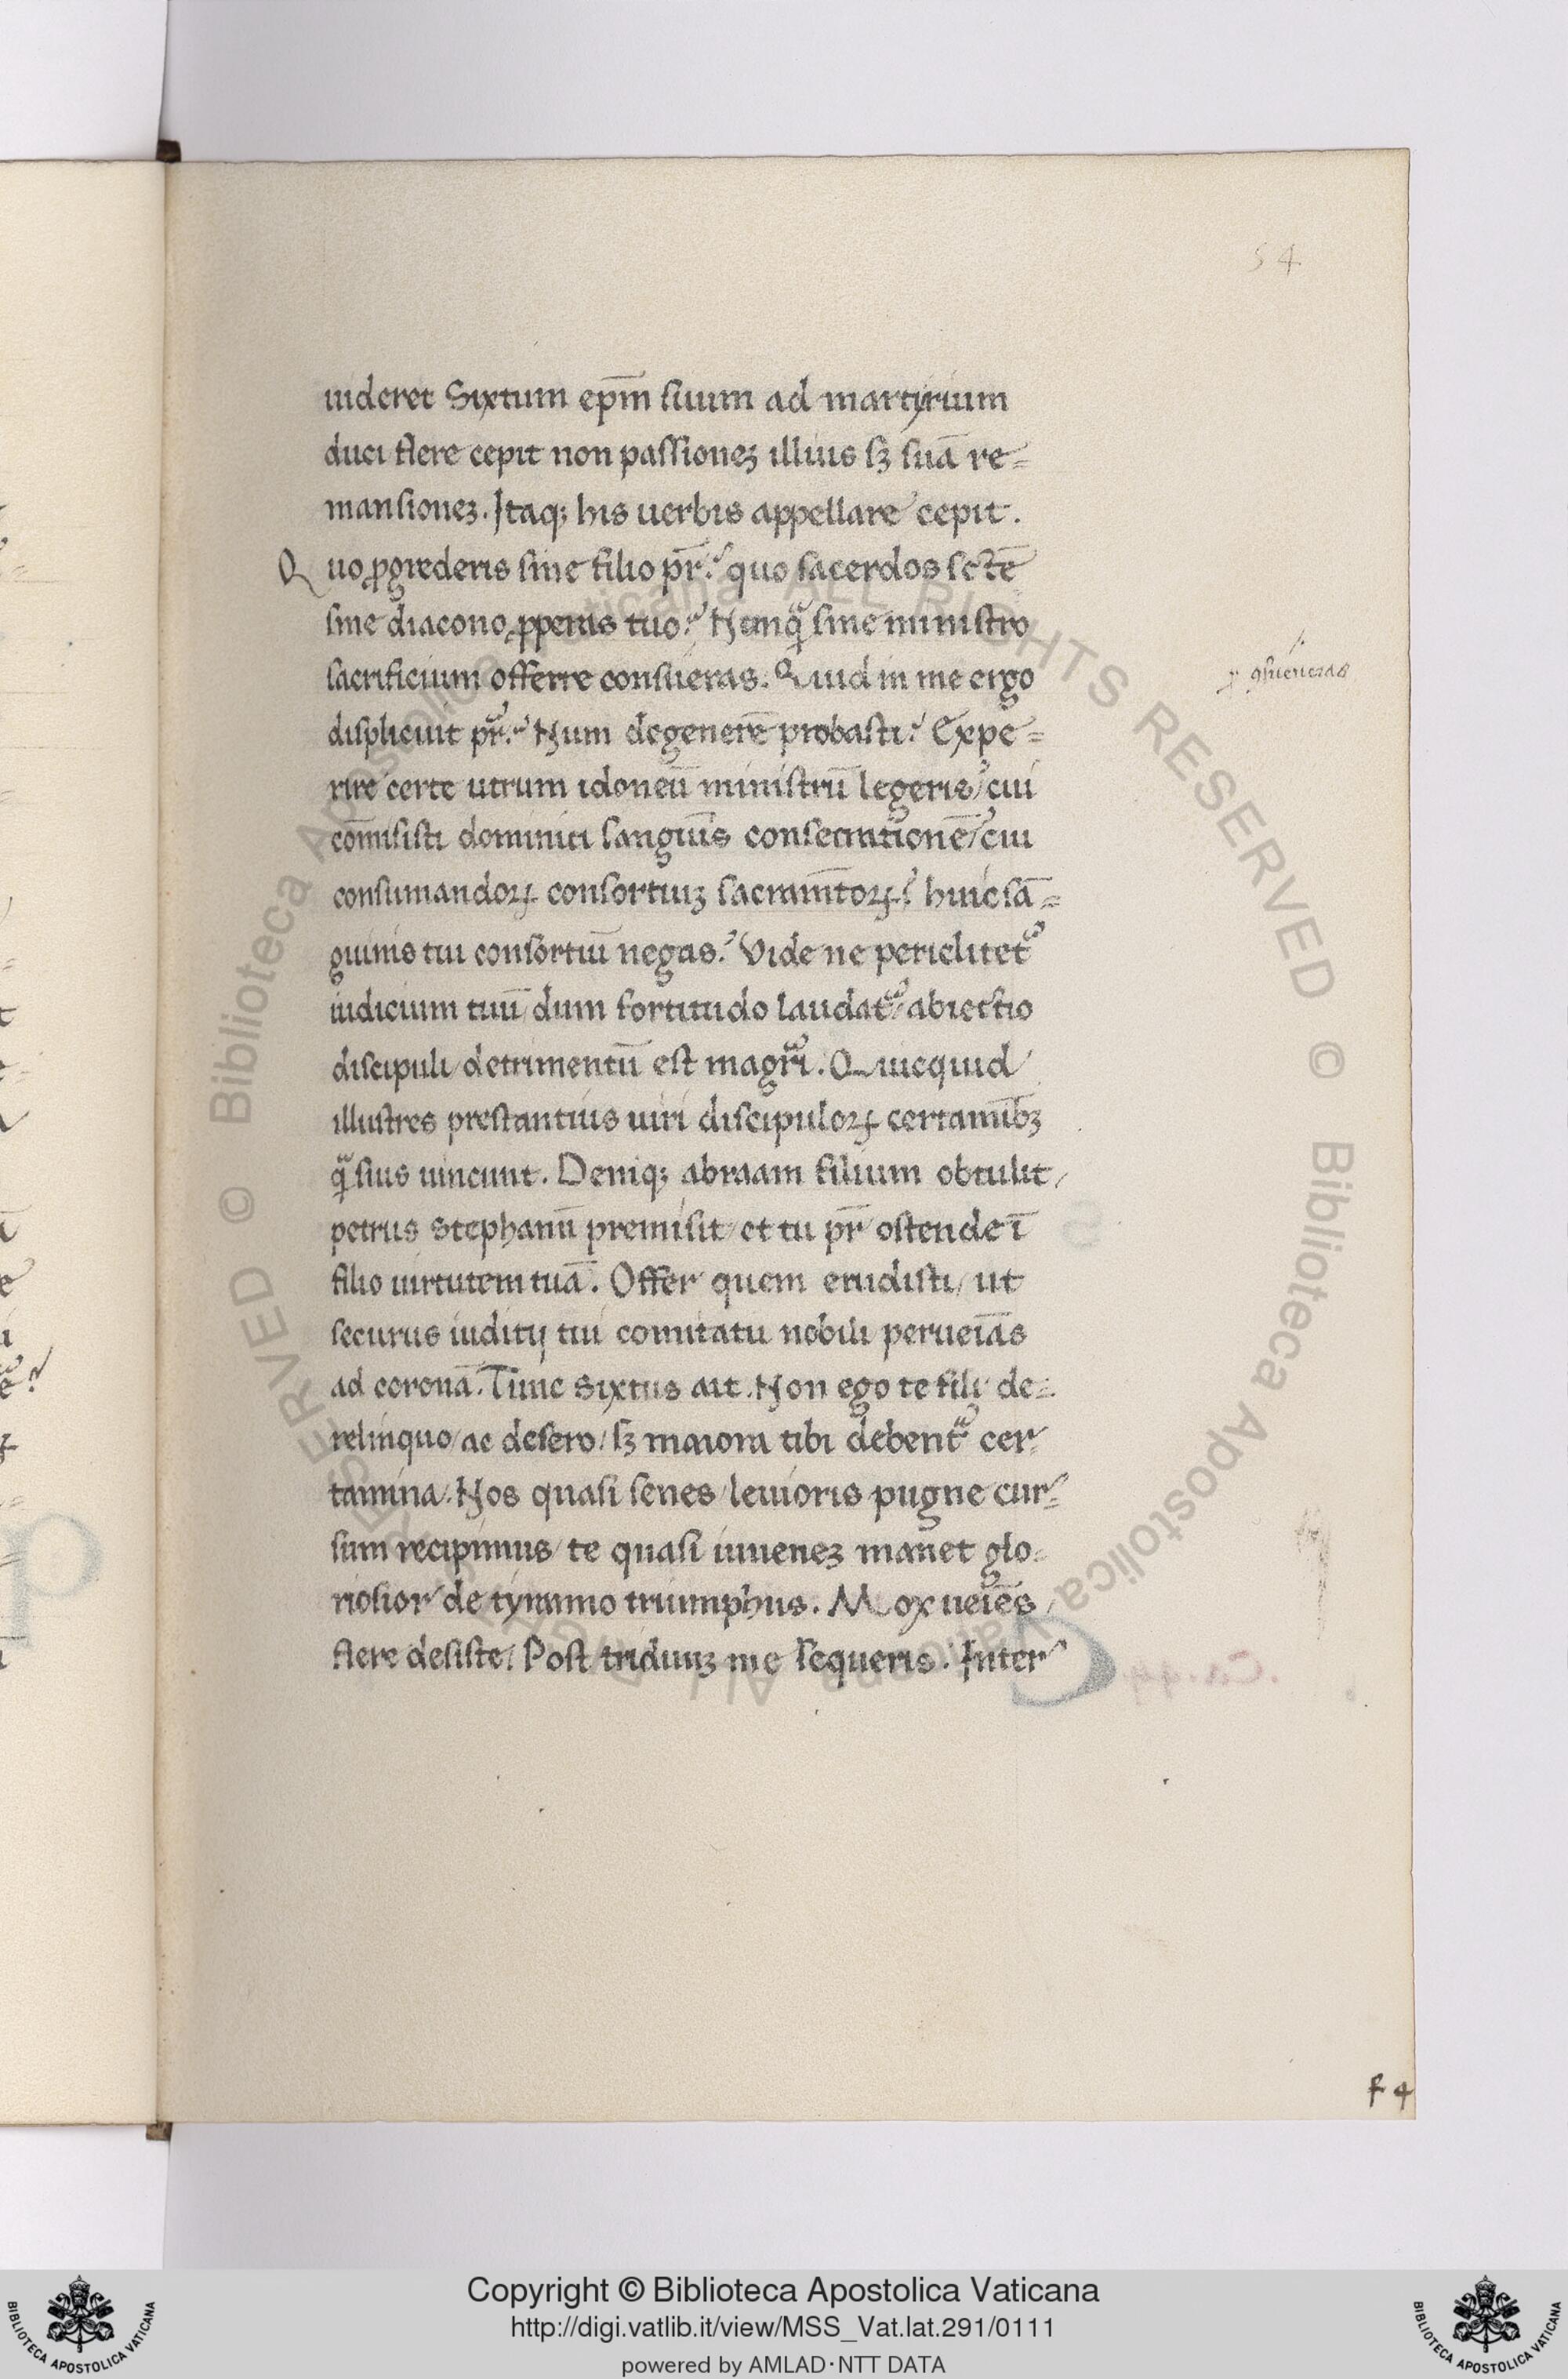 54
uideret Sixtum ep̄m suum ad martyrium
duci flere cepit non passionez illius sz suā re=
mansionez. Itaq; his uerbis appellare cepit.
Quo ꝓgrederis sine filio pr̄? quo sacerdos sctē
sine diacono ꝓperas tuo? Nunq̃ sine ministro
sacrificium offerre consueras. Quid in me ergo
ꝑ ꝯsueueras
displicuit pr̄? Num degenerē probasti? Expe=
rire certe utrum idoneū ministrū legeris/ cui
cōmisisti dominici sanguīs consecrationē/ cui
consumandoꝝ consortiuz sacram̄toꝝ? huic sā=
guinis tui consortiū negas? Vide ne periclitet᷑
iudicium tuū dum fortitudo laudat᷑/ abiectio
discipuli/ detrimentū est magr̄i. Quicquid
illustres prestantius uiri discipuloꝝ certamībz
q̃ suis uincunt. Deniq; abraam filium obtulit/
petrus stephanū premisit/ et tu pr̄ ostende ī
filio uirtutem tuā. Offer quem erudisti/ ut
securus iuditij tui comitatu nobili perueīas
ad coronā. Tunc Sixtus ait. Non ego te fili de=
relinquo/ ac desero/ sz maiora tibi debent᷑ cer=
tamina. Nos quasi senes/ leuioris pugne cur=
sum recipimus/ te quasi iuuenez manet glo=
riosior de tyranno triumphus. Mox ueīes/
flere desiste. Post triduuz me sequeris. Inter
f 4
Copyright © Biblioteca Apostolica Vaticana
http://digi.vatlib.it/view/MSS_Vat.lat.291/0111
powered by AMLAD·NTT DATA
BIBLIOTECA APOSTOLICA VATICANA
BIBLIOTECA APOSTOLICA VATICANA